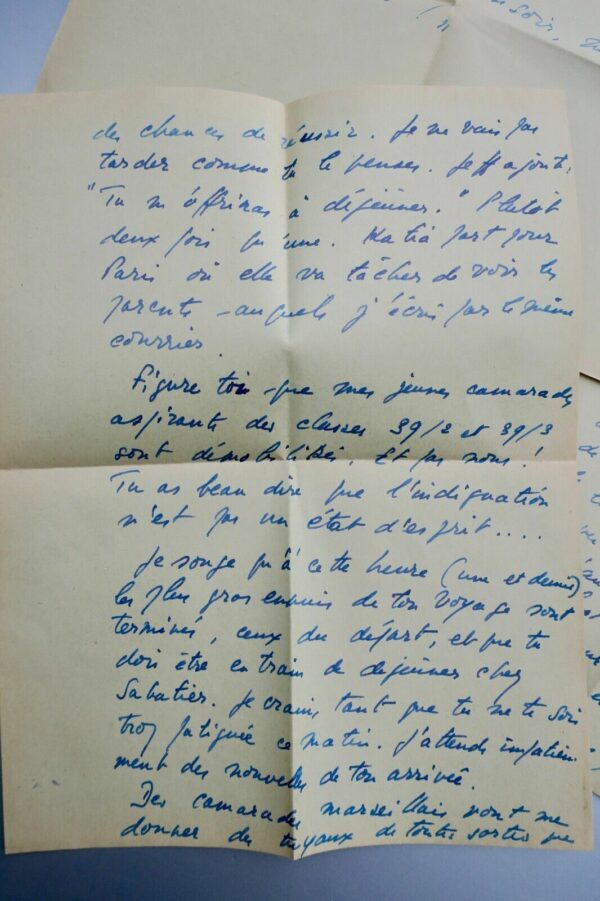 soir,
des chances de réussir. Je ne vais pas
tarder comme tu le penses. Jeff ajoute:
"Tu m'offriras à déjeûner." Plutôt
deux fois qu'une. Katia part pour
Paris où elle va tâcher de voir les
parents - auquels j'écris par le même
courrier.
Figure toi que mes jeunes camarades
aspirants des classes 39/2 et 39/3
sont démobilisés. Et pas nous!
Tu as beau dire que l'indignation
n'est pas un état d'esprit....
Je songe qu'à cette heure (une et demie)
les plus gros ennuis de ton voyage sont
terminés, ceux du départ, et que tu
dois être en train de déjeûner chez
Sabatier. Je crains tant que tu ne te sois
trop fatiguée ce matin. J'attends impatiem-
ment des nouvelles de ton arrivée.
Des camarades marseillais vont me
donner des tuyaux de toutes sortes que